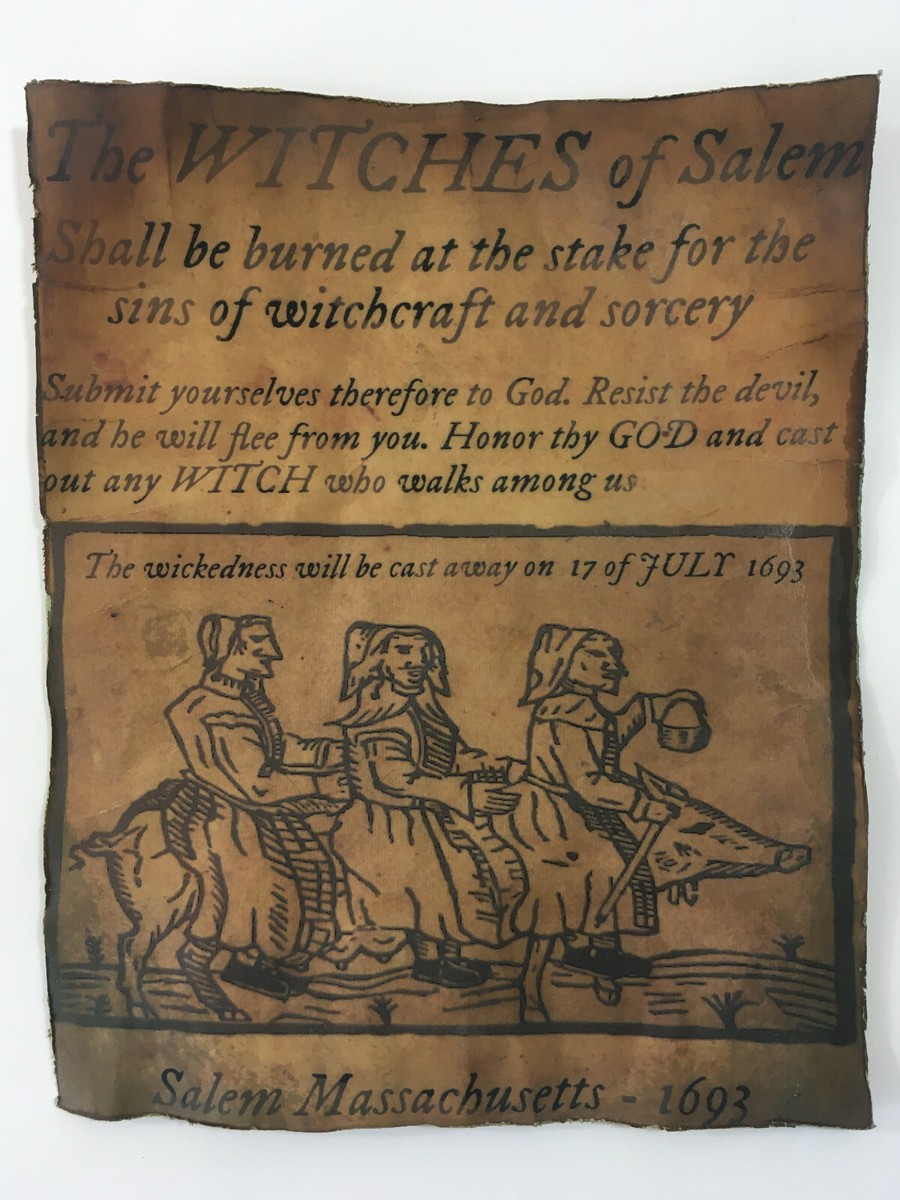 The WITCHES of Salem
Shall be burned at the stake for the
sins of witchcraft and sorcery
Submit yourselves therefore to God. Resist the devil,
and he will flee from you. Honor thy GOD and cast
out any WITCH who walks among us
The wickedness will be cast away on 17 of JULY 1693
Salem Massachusetts - 1693